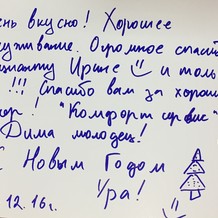 ень вкусно! Хорошее
служивание. Огромное спасибо
ицианту Ирине и толь
!!! Спасибо вам за хорош
ор! "Комфорт сервис"
Дима молодец!
С Новым Годом
Ура!
12.16г.